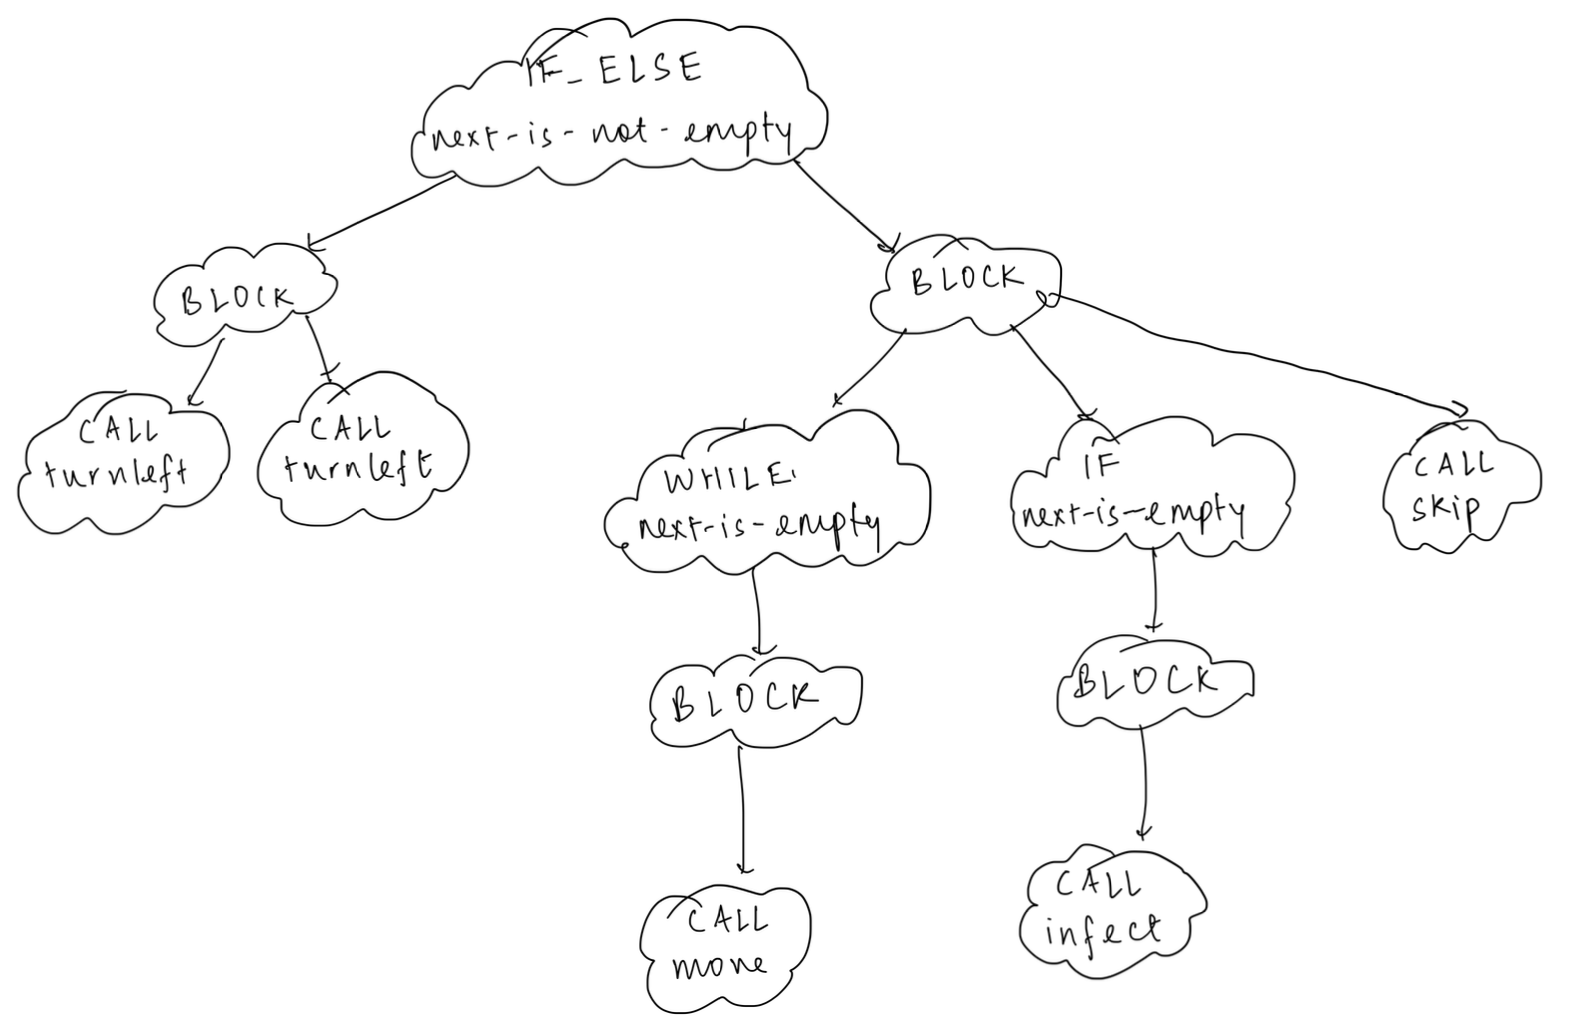 IF_ELSE
next-is-not-empty
BLOCK
BLOCK
CALL
turnleft
CALL
turnleft
WHILE
next-is-empty
IF
next-is-empty
CALL
skip
BLOCK
BLOCK
CALL
move
CALL
infect